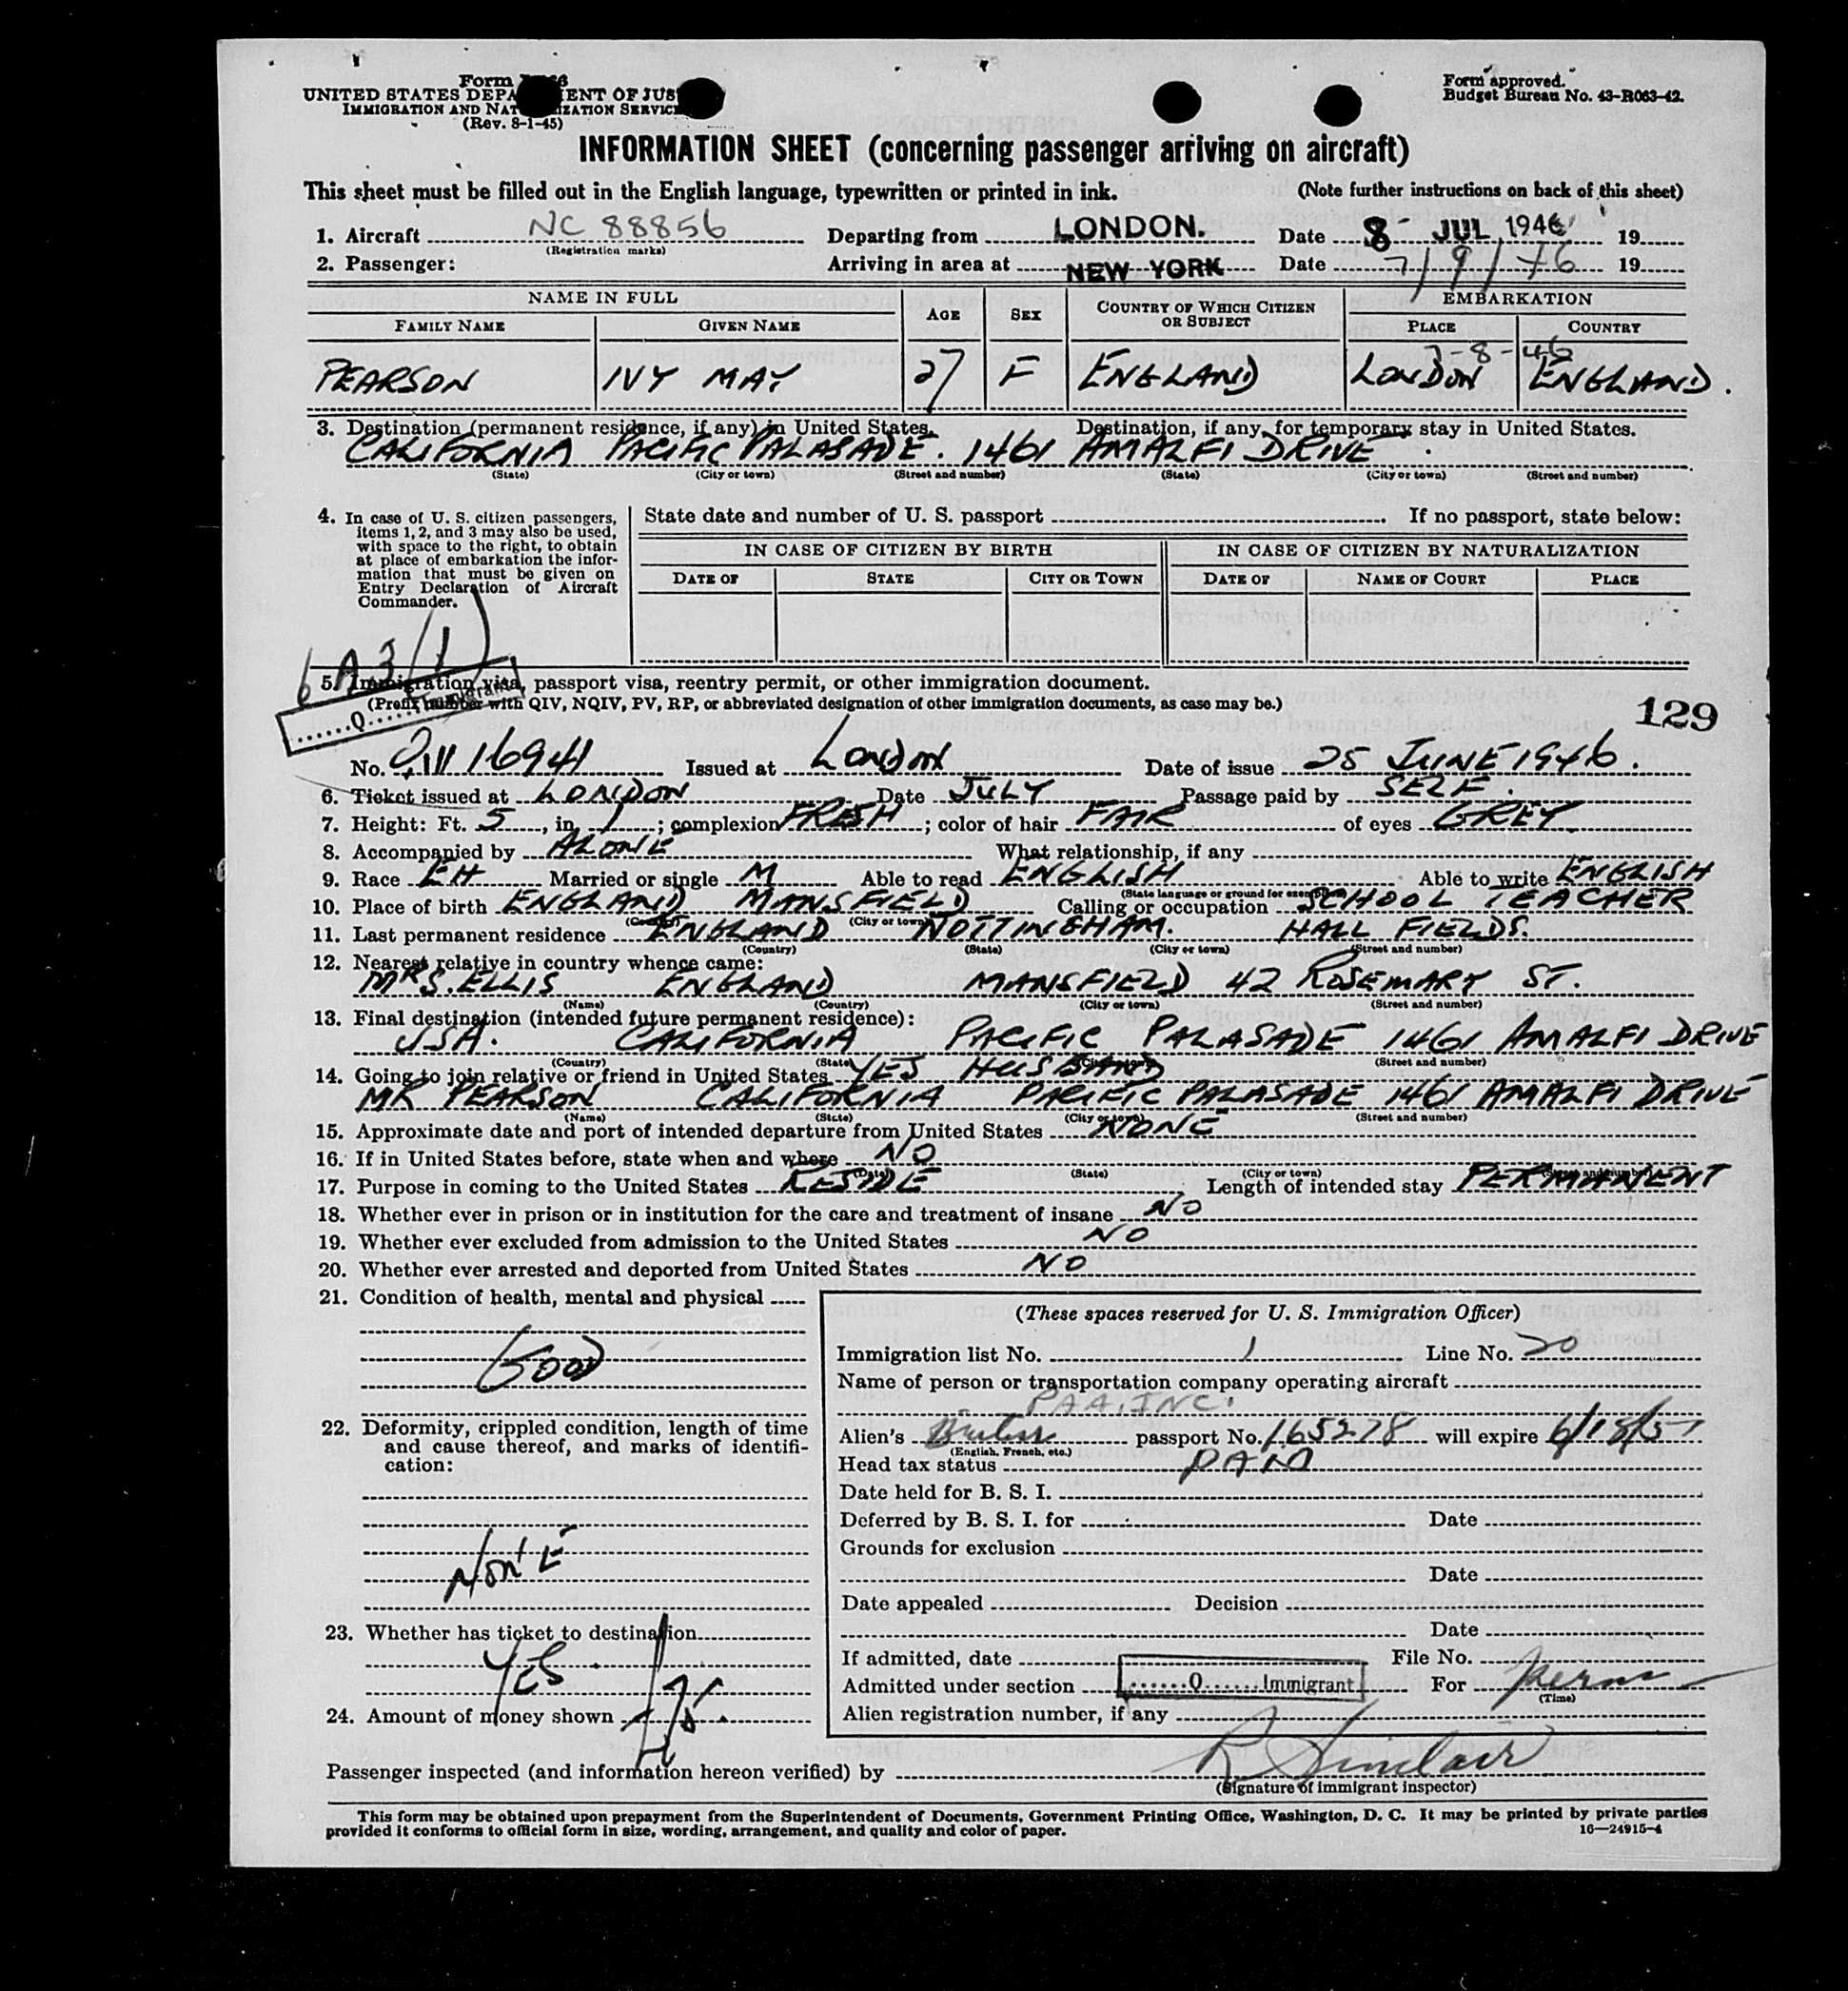 Form
UNITED STATES DEPA ENT OF JUS
IMMIGRATION AND NAT IZATION SERVIC
(Rev. 8-1-45)
Form approved.
Budget Bureau No. 43-R063-42.
INFORMATION SHEET (concerning passenger arriving on aircraft)
This sheet must be filled out in the English language, typewritten or printed in ink. (Note further instructions on back of this sheet)
1. Aircraft NC 88856 Departing from LONDON. Date 8 - JUL 1946 19
(Registration marks)
2. Passenger: Arriving in area at NEW YORK Date 7/9/46 19
NAME IN FULL AGE SEX COUNTRY OF WHICH CITIZEN OR SUBJECT EMBARKATION
FAMILY NAME GIVEN NAME PLACE COUNTRY
7-8-46
PEARSON IVY MAY 27 F ENGLAND LONDON ENGLAND.
3. Destination (permanent residence, if any) in United States. Destination, if any, for temporary stay in United States.
CALIFORNIA PACIFIC PALASADE. 1461 AMALFI DRIVE
(State) (City or town) (Street and number) (State) (City or town) (Street and number)
4. In case of U. S. citizen passengers,
items 1, 2, and 3 may also be used,
with space to the right, to obtain
at place of embarkation the infor-
mation that must be given on
Entry Declaration of Aircraft
Commander.
State date and number of U. S. passport . If no passport, state below:
IN CASE OF CITIZEN BY BIRTH IN CASE OF CITIZEN BY NATURALIZATION
DATE OF STATE CITY OR TOWN DATE OF NAME OF COURT PLACE
6A3/1)
5. Immigration visa, passport visa, reentry permit, or other immigration document.
(Prefix number with QIV, NQIV, PV, RP, or abbreviated designation of other immigration documents, as case may be.)
Q Immigrant
129
No. QIV 16941 Issued at London Date of issue 25 JUNE 1946.
6. Ticket issued at LONDON Date JULY Passage paid by SELF.
7. Height: Ft. 5, in. 1; complexion FRESH; color of hair FAIR of eyes GREY
8. Accompanied by ALONE What relationship, if any
9. Race EH Married or single M Able to read ENGLISH Able to write ENGLISH
(State language or ground for exemption)
10. Place of birth ENGLAND MANSFIELD Calling or occupation SCHOOL TEACHER
(Country) (City or town)
11. Last permanent residence ENGLAND NOTTINGHAM. HALL FIELDS.
(Country) (State) (City or town) (Street and number)
12. Nearest relative in country whence came:
MRS. ELLIS ENGLAND MANSFIELD 42 ROSEMARY ST.
(Name) (Country) (City or town) (Street and number)
13. Final destination (intended future permanent residence):
USA. CALIFORNIA PACIFIC PALASADE 1461 AMALFI DRIVE
(Country) (State) (City or town) (Street and number)
14. Going to join relative or friend in United States YES HUSBAND
MR PEARSON CALIFORNIA PACIFIC PALASADE 1461 AMALFI DRIVE
(Name) (State) (City or town) (Street and number)
15. Approximate date and port of intended departure from United States NONE
16. If in United States before, state when and where NO
(Date) (State) (City or town) (Street and number)
17. Purpose in coming to the United States RESIDE, Length of intended stay PERMANENT
18. Whether ever in prison or in institution for the care and treatment of insane NO
19. Whether ever excluded from admission to the United States NO
20. Whether ever arrested and deported from United States NO
21. Condition of health, mental and physical
GOOD
22. Deformity, crippled condition, length of time
and cause thereof, and marks of identifi-
cation:
NONE
23. Whether has ticket to destination
YES.
24. Amount of money shown
(These spaces reserved for U. S. Immigration Officer)
Immigration list No. 1 Line No. 20
Name of person or transportation company operating aircraft
PAA. INC.
Alien's British passport No. 165278 will expire 6/18/51
(English, French, etc.)
Head tax status PAID
Date held for B. S. I.
Deferred by B. S. I. for Date
Grounds for exclusion
Date
Date appealed Decision
Date
If admitted, date File No.
Admitted under section Q Immigrant For perm
(Time)
Alien registration number, if any
Passenger inspected (and information hereon verified) by R Sinclair
(Signature of immigrant inspector)
This form may be obtained upon prepayment from the Superintendent of Documents, Government Printing Office, Washington, D. C. It may be printed by private parties
provided it conforms to official form in size, wording, arrangement, and quality and color of paper. 16—24915-4